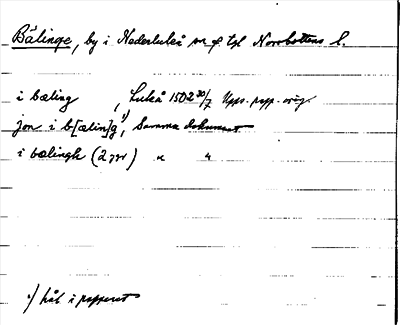 Bälinge, by i Nederluleå sn o. tgl Norrbottens l.
i bæling, Luleå 1502 30/7 Upps. papp. orig.
jon i b[ælin]g¹), Samma dokument
i bælingh (2 ggr) " "
¹) hål i papperet